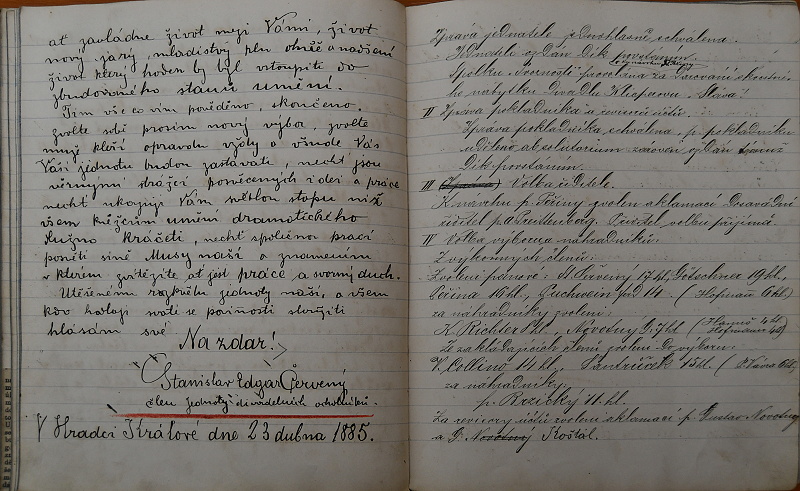 ať zavládne život mezi Vámi, život
nový, jarý, mladistvý, pln ohně a nadšení
život který hoden by byl vstoupiti do
zbudovaného stánku umění.
Tím vše co vím pověděno, skončeno.
zvolte sobě prosím nový výbor, zvolte
muže kteří opravdu vždy a všude Vás
Vaši jednotu budou zastávati, nechť jsou
věrnými strážci posvěcených ideí a práce
nechť ukazuje Vám světlou stopu již
všem kněžcům umění dramatického
dlužno kráčeti, nechť společnou prací
poněti síně Musy naší a znamením
v kterém zvítězíte ať jest práce a svorný duch.
Utěšenému rozkvětu jednoty naší, a všem
kdo hodlají svatě se povinosti
hlásám své
Na zdar!
Stanislav Edgar Červený
člen jednoty divadelních ochotníků.
V Hradci Králové dne 23 dubna 1885.
Zpráva jednatele jednohlasně schválena.
Jednateli vzdán Dík povstáním.
Spolku
ho nábytku Divadlu Klicperovu. Sláva!
II Zpráva pokladníka a revisorů účtů.
Zpráva pokladníka schválena, p. pokladníku
uděleno absolutorium zároveň vzdán týmuž
Dík povstáním.
III Volba ředitele.
K návrhu p. Peřiny zvolen aklamací
ředitel p. volbu přijímá.
IV Volba výboru a náhradníků.
Z výkonných členů:
Zvoleni pánové: St. Červený 17 hl, Götschner 19 hl.,
Peřina 16 hl., Puchwein 14. (Hofman 6 hl)
za náhradníky zvoleni:
K. Richter hl., Novotný G. 7 hl
Ze zakládajících členů zvoleni do výboru:
V. Collino 11 hl., Šandrůček 15 hl. (Vávra 6 hl.
za náhradníka:
p. Růžičký 11 hl.
Za revisory účtů zvoleni aklamací p. Gustav Novotný
a P. Novotný Košťál.